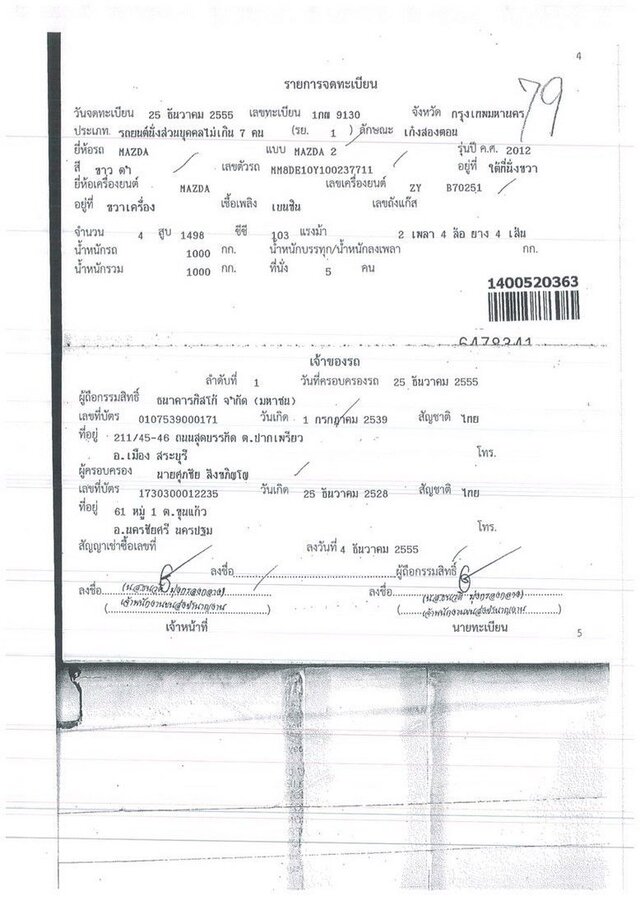 4
79
รายการจดทะเบียน
วันจดทะเบียน 25 ธันวาคม 2555 เลขทะเบียน 1กฬ 9130 จังหวัด กรุงเทพมหานคร
ประเภท รถยนต์นั่งส่วนบุคคลไม่เกิน 7 คน (รย. 1 ) ลักษณะ เก๋งสองตอน
ยี่ห้อรถ MAZDA แบบ MAZDA 2 รุ่นปี ค.ศ. 2012
สี ขาว ดำ เลขตัวรถ MM8DE10Y100237711 อยู่ที่ ใต้ที่นั่งขวา
ยี่ห้อเครื่องยนต์ MAZDA เลขเครื่องยนต์ ZY B70251
อยู่ที่ ขวาเครื่อง เชื้อเพลิง เบนซิน เลขถังแก๊ส
จำนวน 4 สูบ 1498 ซีซี 103 แรงม้า 2 เพลา 4 ล้อ ยาง 4 เส้น
น้ำหนักรถ 1000 กก. น้ำหนักบรรทุก/น้ำหนักลงเพลา กก.
น้ำหนักรวม 1000 กก. ที่นั่ง 5 คน
1400520363
6478341
เจ้าของรถ
ลำดับที่ 1 วันที่ครอบครองรถ 25 ธันวาคม 2555
ผู้ถือกรรมสิทธิ์ ธนาคารทิสโก้ จำกัด (มหาชน)
เลขที่บัตร 0107539000171 วันเกิด 1 กรกฎาคม 2539 สัญชาติ ไทย
ที่อยู่ 211/45-46 ถนนสุดบรรทัด ต.ปากเพรียว
อ.เมือง สระบุรี โทร.
ผู้ครอบครอง นายศุภชัย
เลขที่บัตร 1730300012235 วันเกิด 25 ธันวาคม 2528 สัญชาติ ไทย
ที่อยู่ 61 หมู่ 1 ต.ขุนแก้ว
อ.นครชัยศรี นครปฐม โทร.
สัญญาเช่าซื้อเลขที่ ลงวันที่ 4 ธันวาคม 2555
ลงชื่อ ผู้ถือกรรมสิทธิ์
ลงชื่อ ลงชื่อ
(เจ้าพนักงานขนส่งชำนาญงาน) (เจ้าพนักงานขนส่งชำนาญงาน)
เจ้าหน้าที่ นายทะเบียน
5